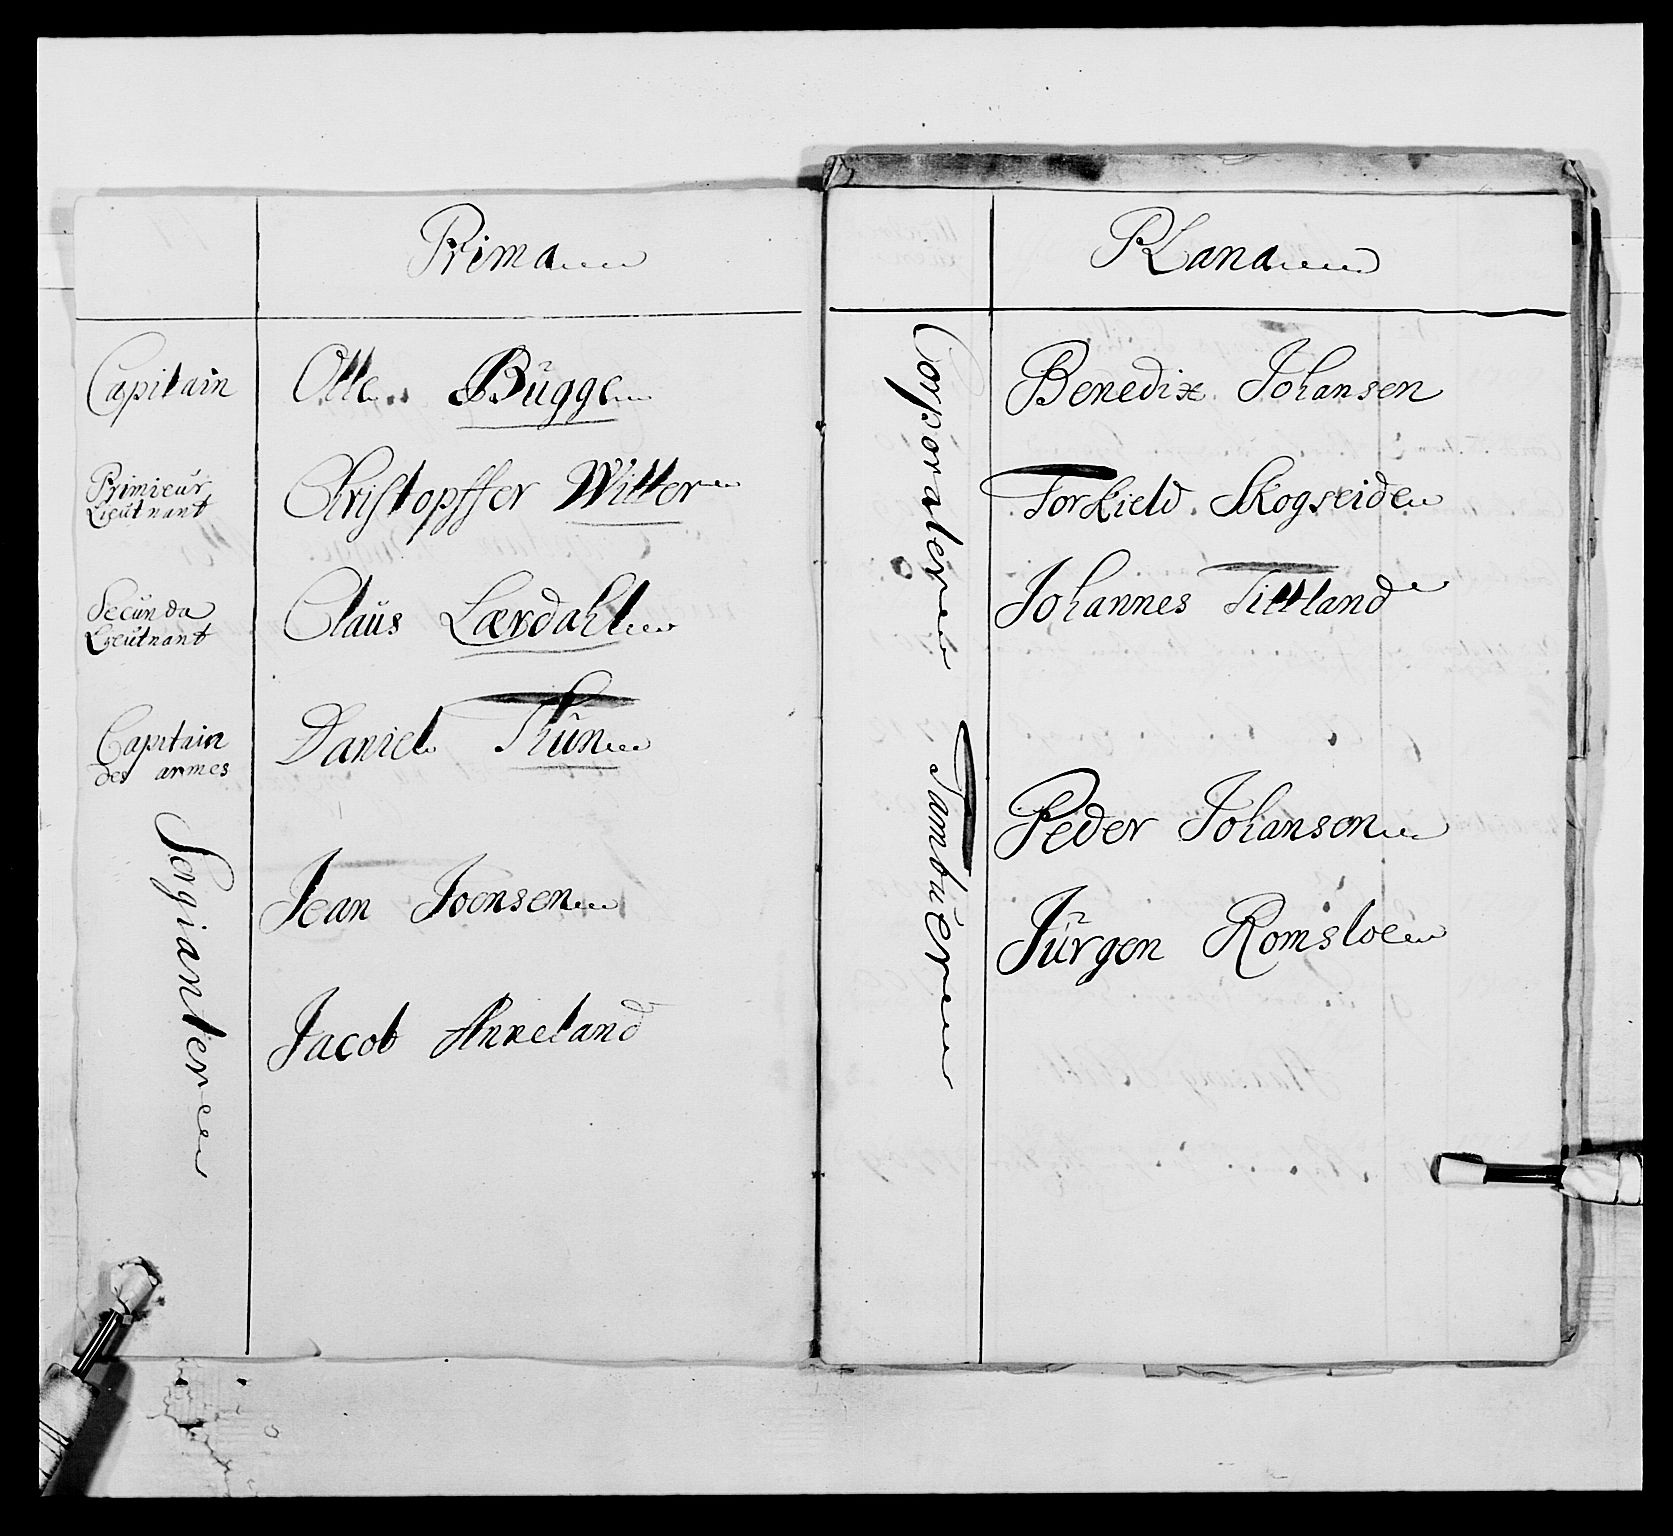 Prima
Capitain Olle Bügge
Primieur
Lieutnant
Christopffer Witter
Secunda
Lieutnant
Claüs Lærdahl
Capitain
des armes
Daniel Thün
Sergianter
Jean Joensen
Jacob Anneland
Plana
Corporaler
Benedix Johansen
Torkield Skogseide
Johannes Tittland
Tambuerer
Peder Johansen
Jürgen Romsloe